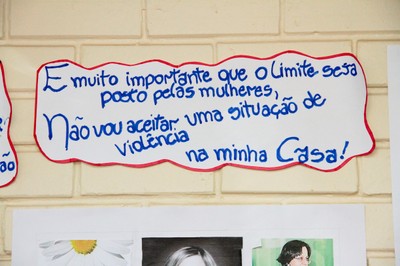 E muito importante que o Limite seja
posto pelas mulheres,
Não vou aceitar uma situação de
violência
na minha Casa!
ão